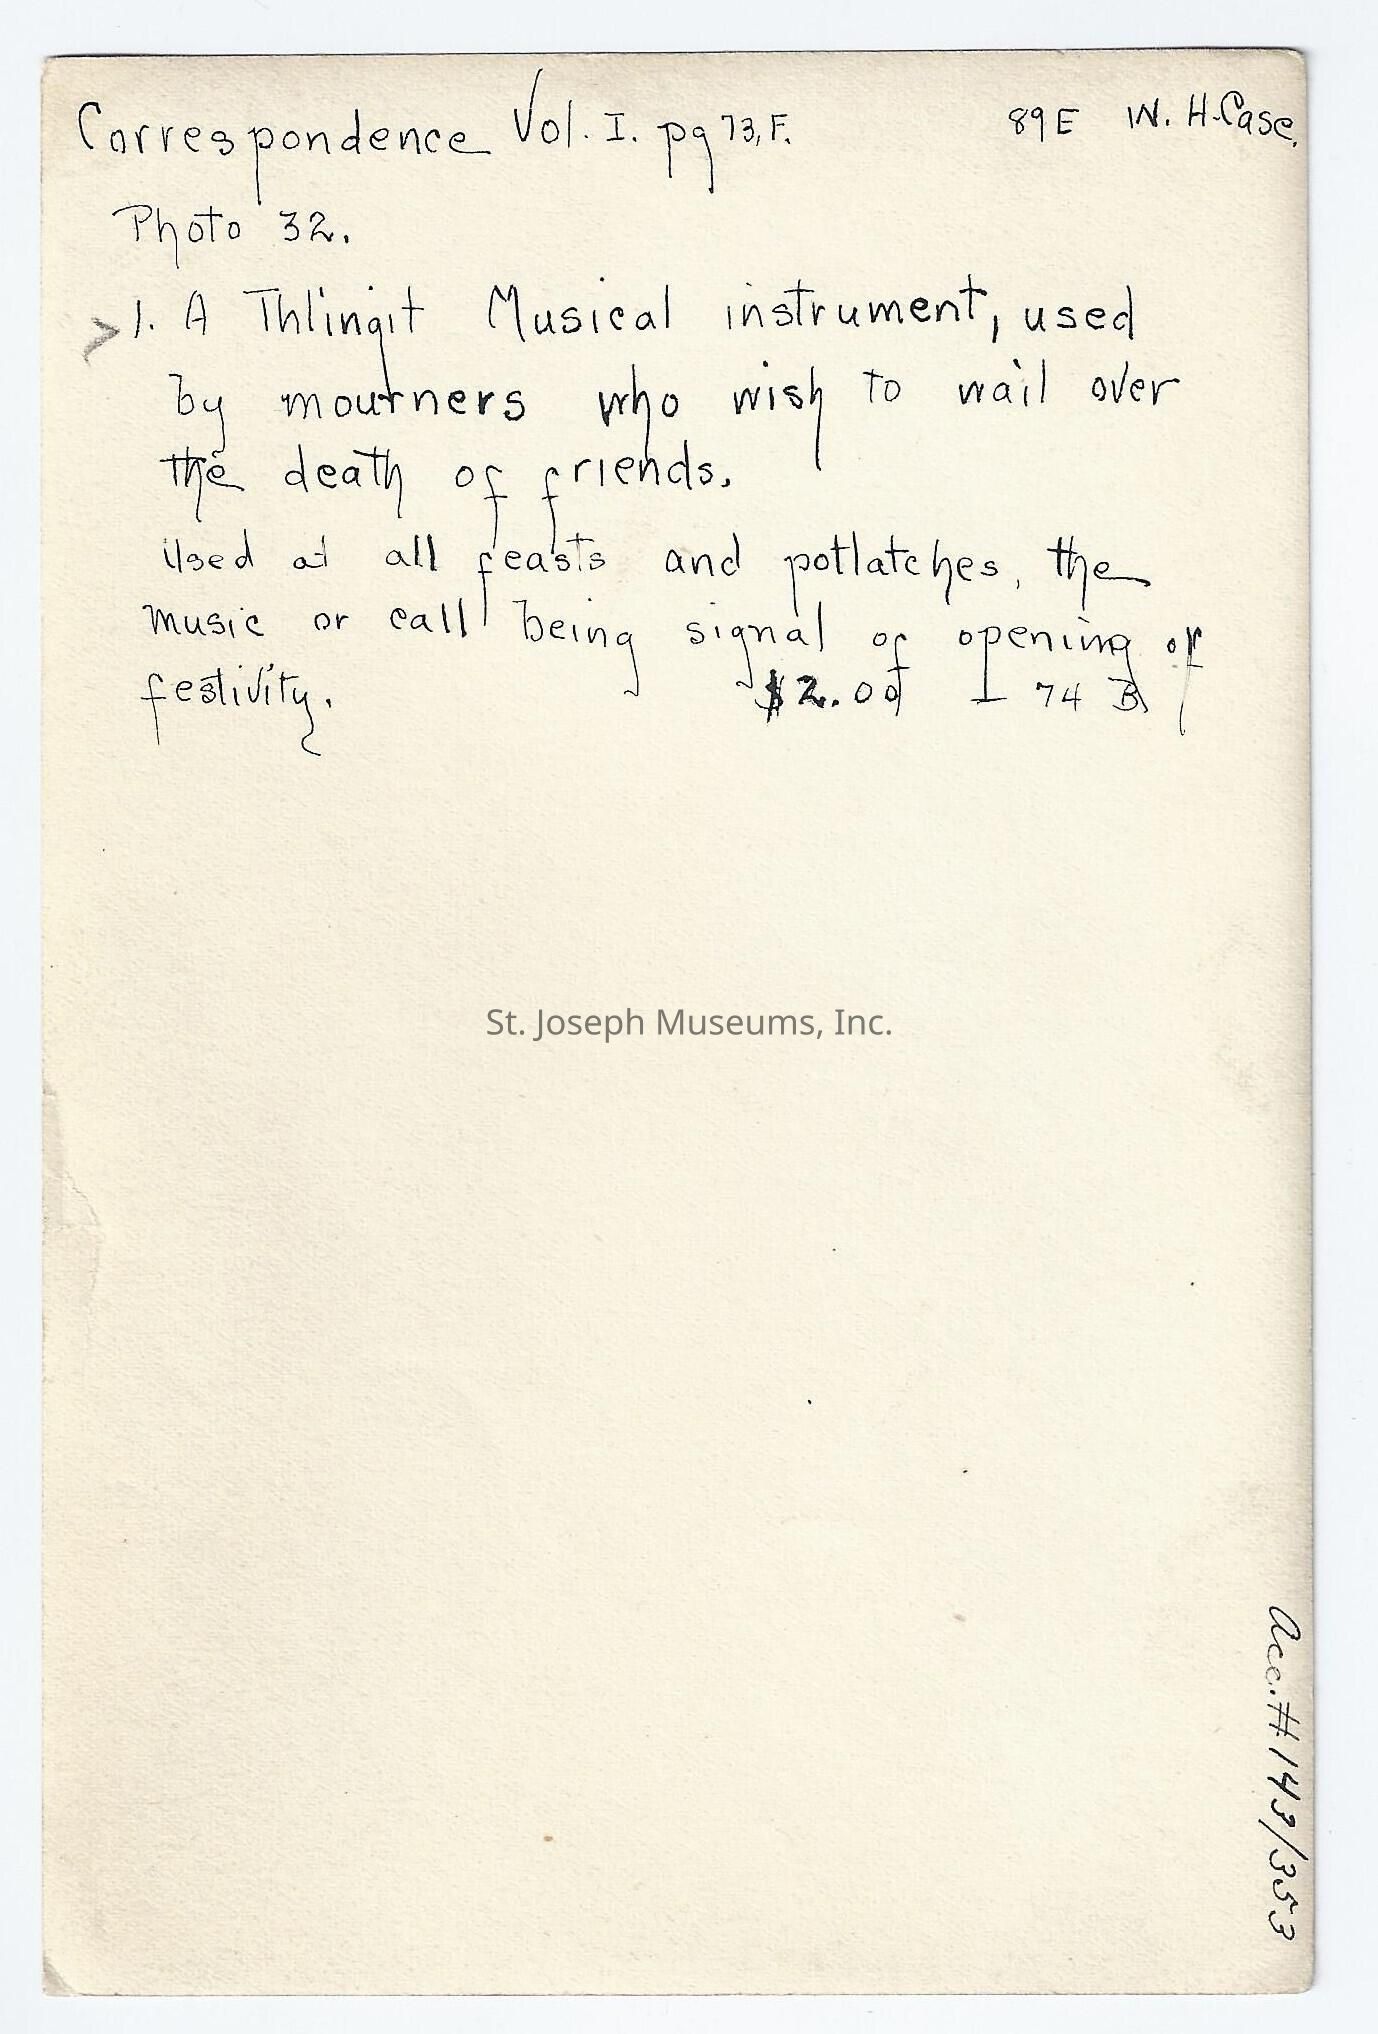 Correspondence Vol. I. pg 73, F. 89E W. H. Case.
Photo 32.
> 1. A Thlingit Musical instrument, used
by mourners who wish to wail over
the death of friends.
Used at all feasts and potlatches, the
music or call being signal of opening of
festivity. $2.00 I 74 B
St. Joseph Museums, Inc.
Acc. # 143/353